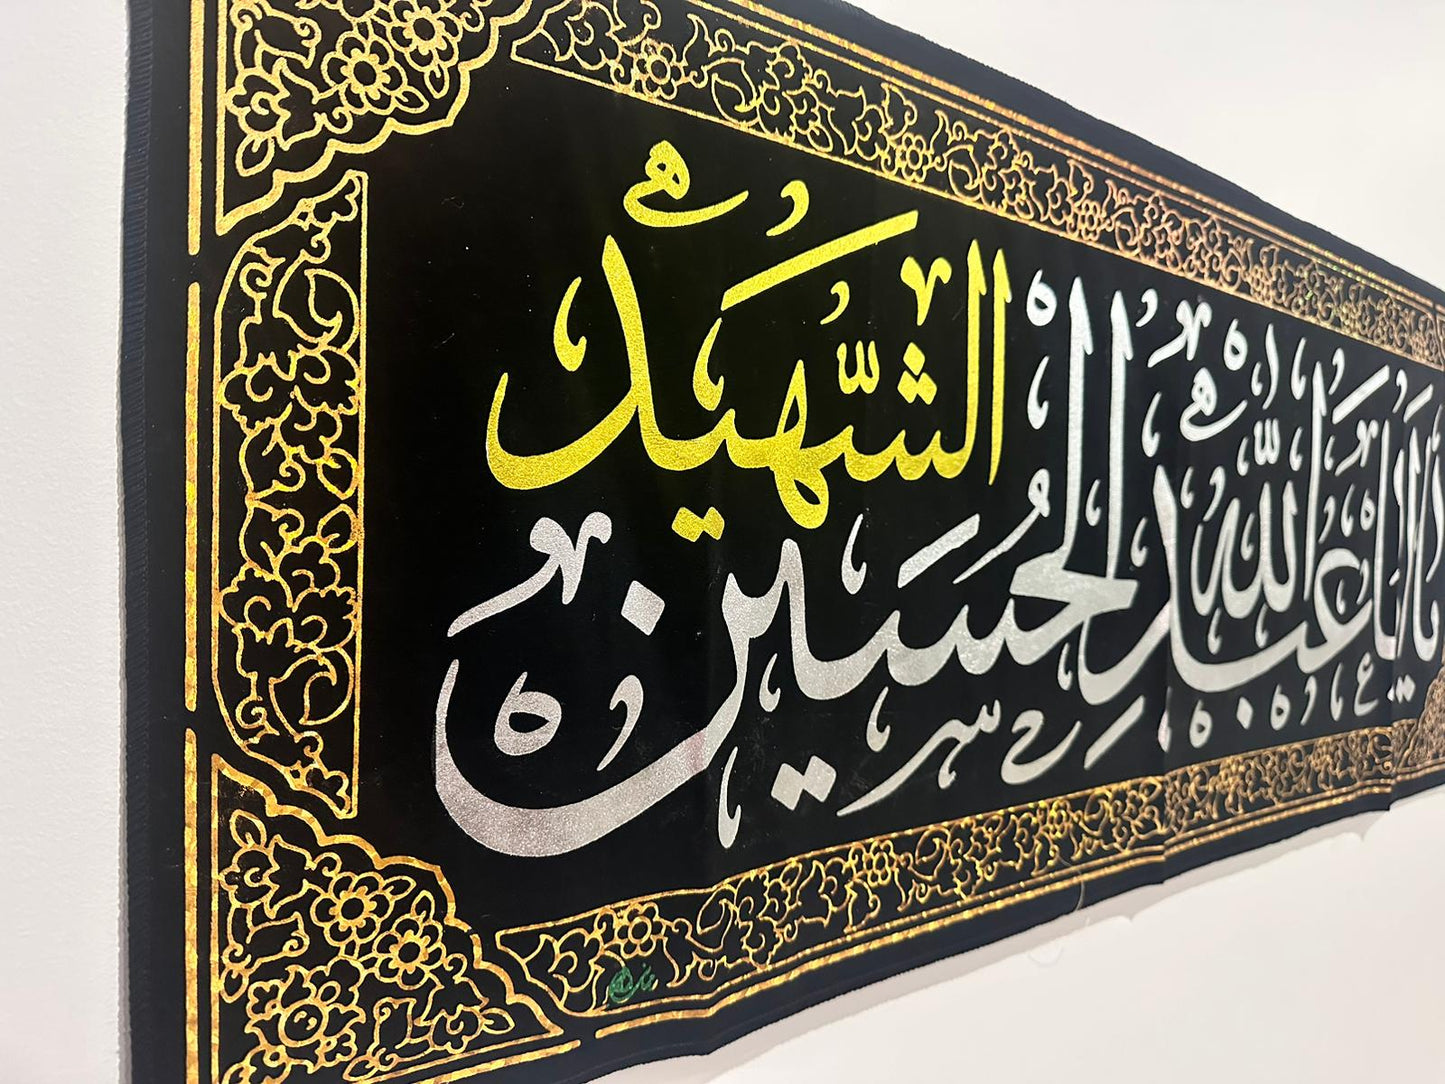 يا أبا عبد الله الحسين
الشهيد